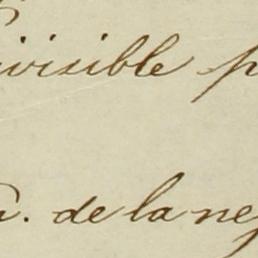 ivisible p
a. de la ne